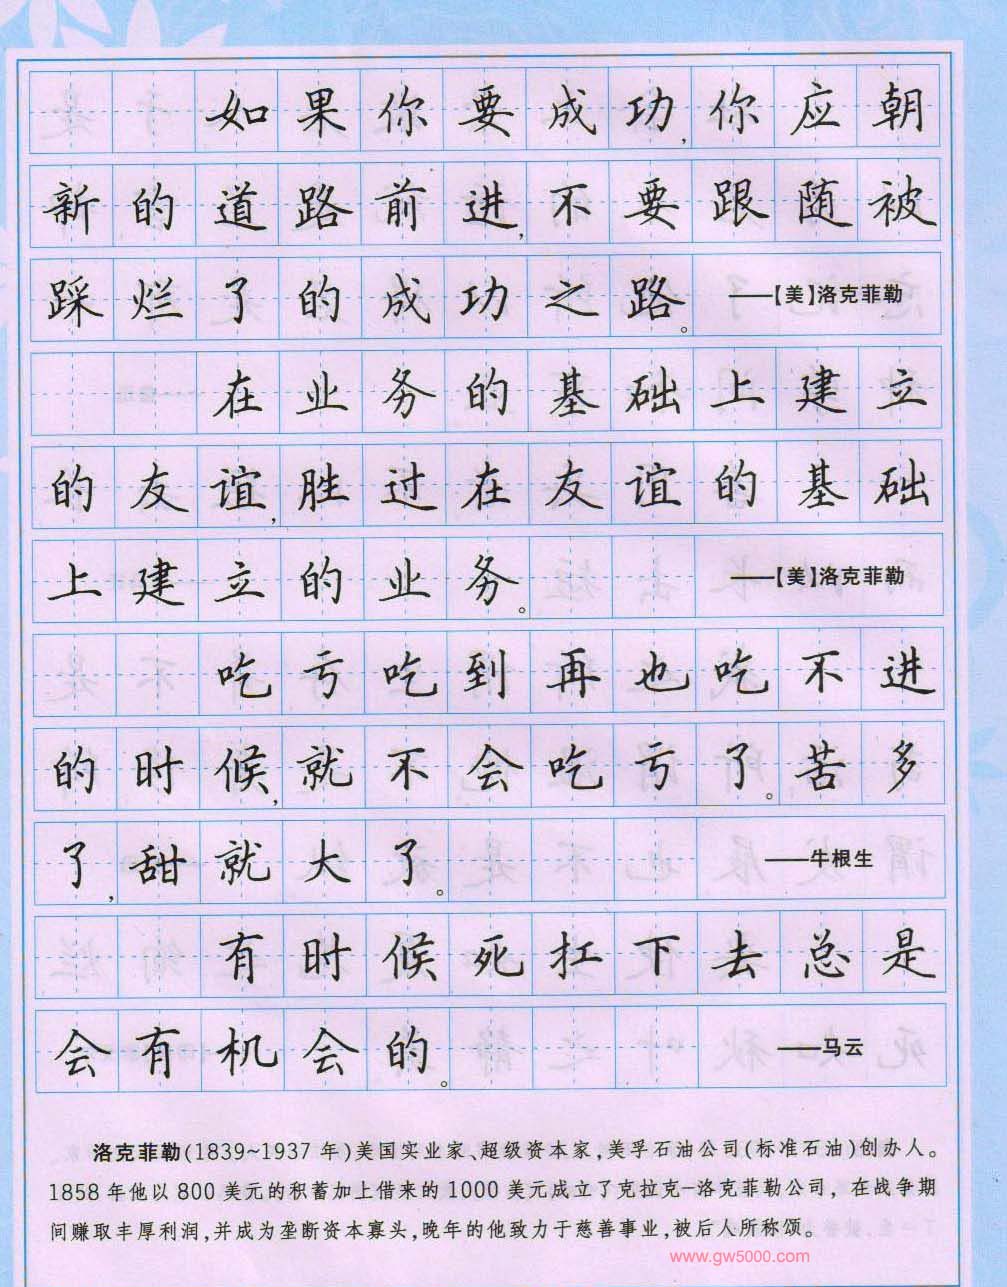 如果你要成功,你应朝
新的道路前进,不要跟随被
踩烂了的成功之路。 ——【美】洛克菲勒
在业务的基础上建立
的友谊,胜过在友谊的基础
上建立的业务。 ——【美】洛克菲勒
吃亏吃到再也吃不进
的时候,就不会吃亏了。苦多
了,甜就大了。 ——牛根生
有时候死扛下去总是
会有机会的。 ——马云
洛克菲勒(1839~1937年)美国实业家、超级资本家,美孚石油公司(标准石油)创办人。
1858年他以800美元的积蓄加上借来的1000美元成立了克拉克-洛克菲勒公司,在战争期
间赚取丰厚利润,并成为垄断资本寡头,晚年的他致力于慈善事业,被后人所称颂。
www.gw5000.com